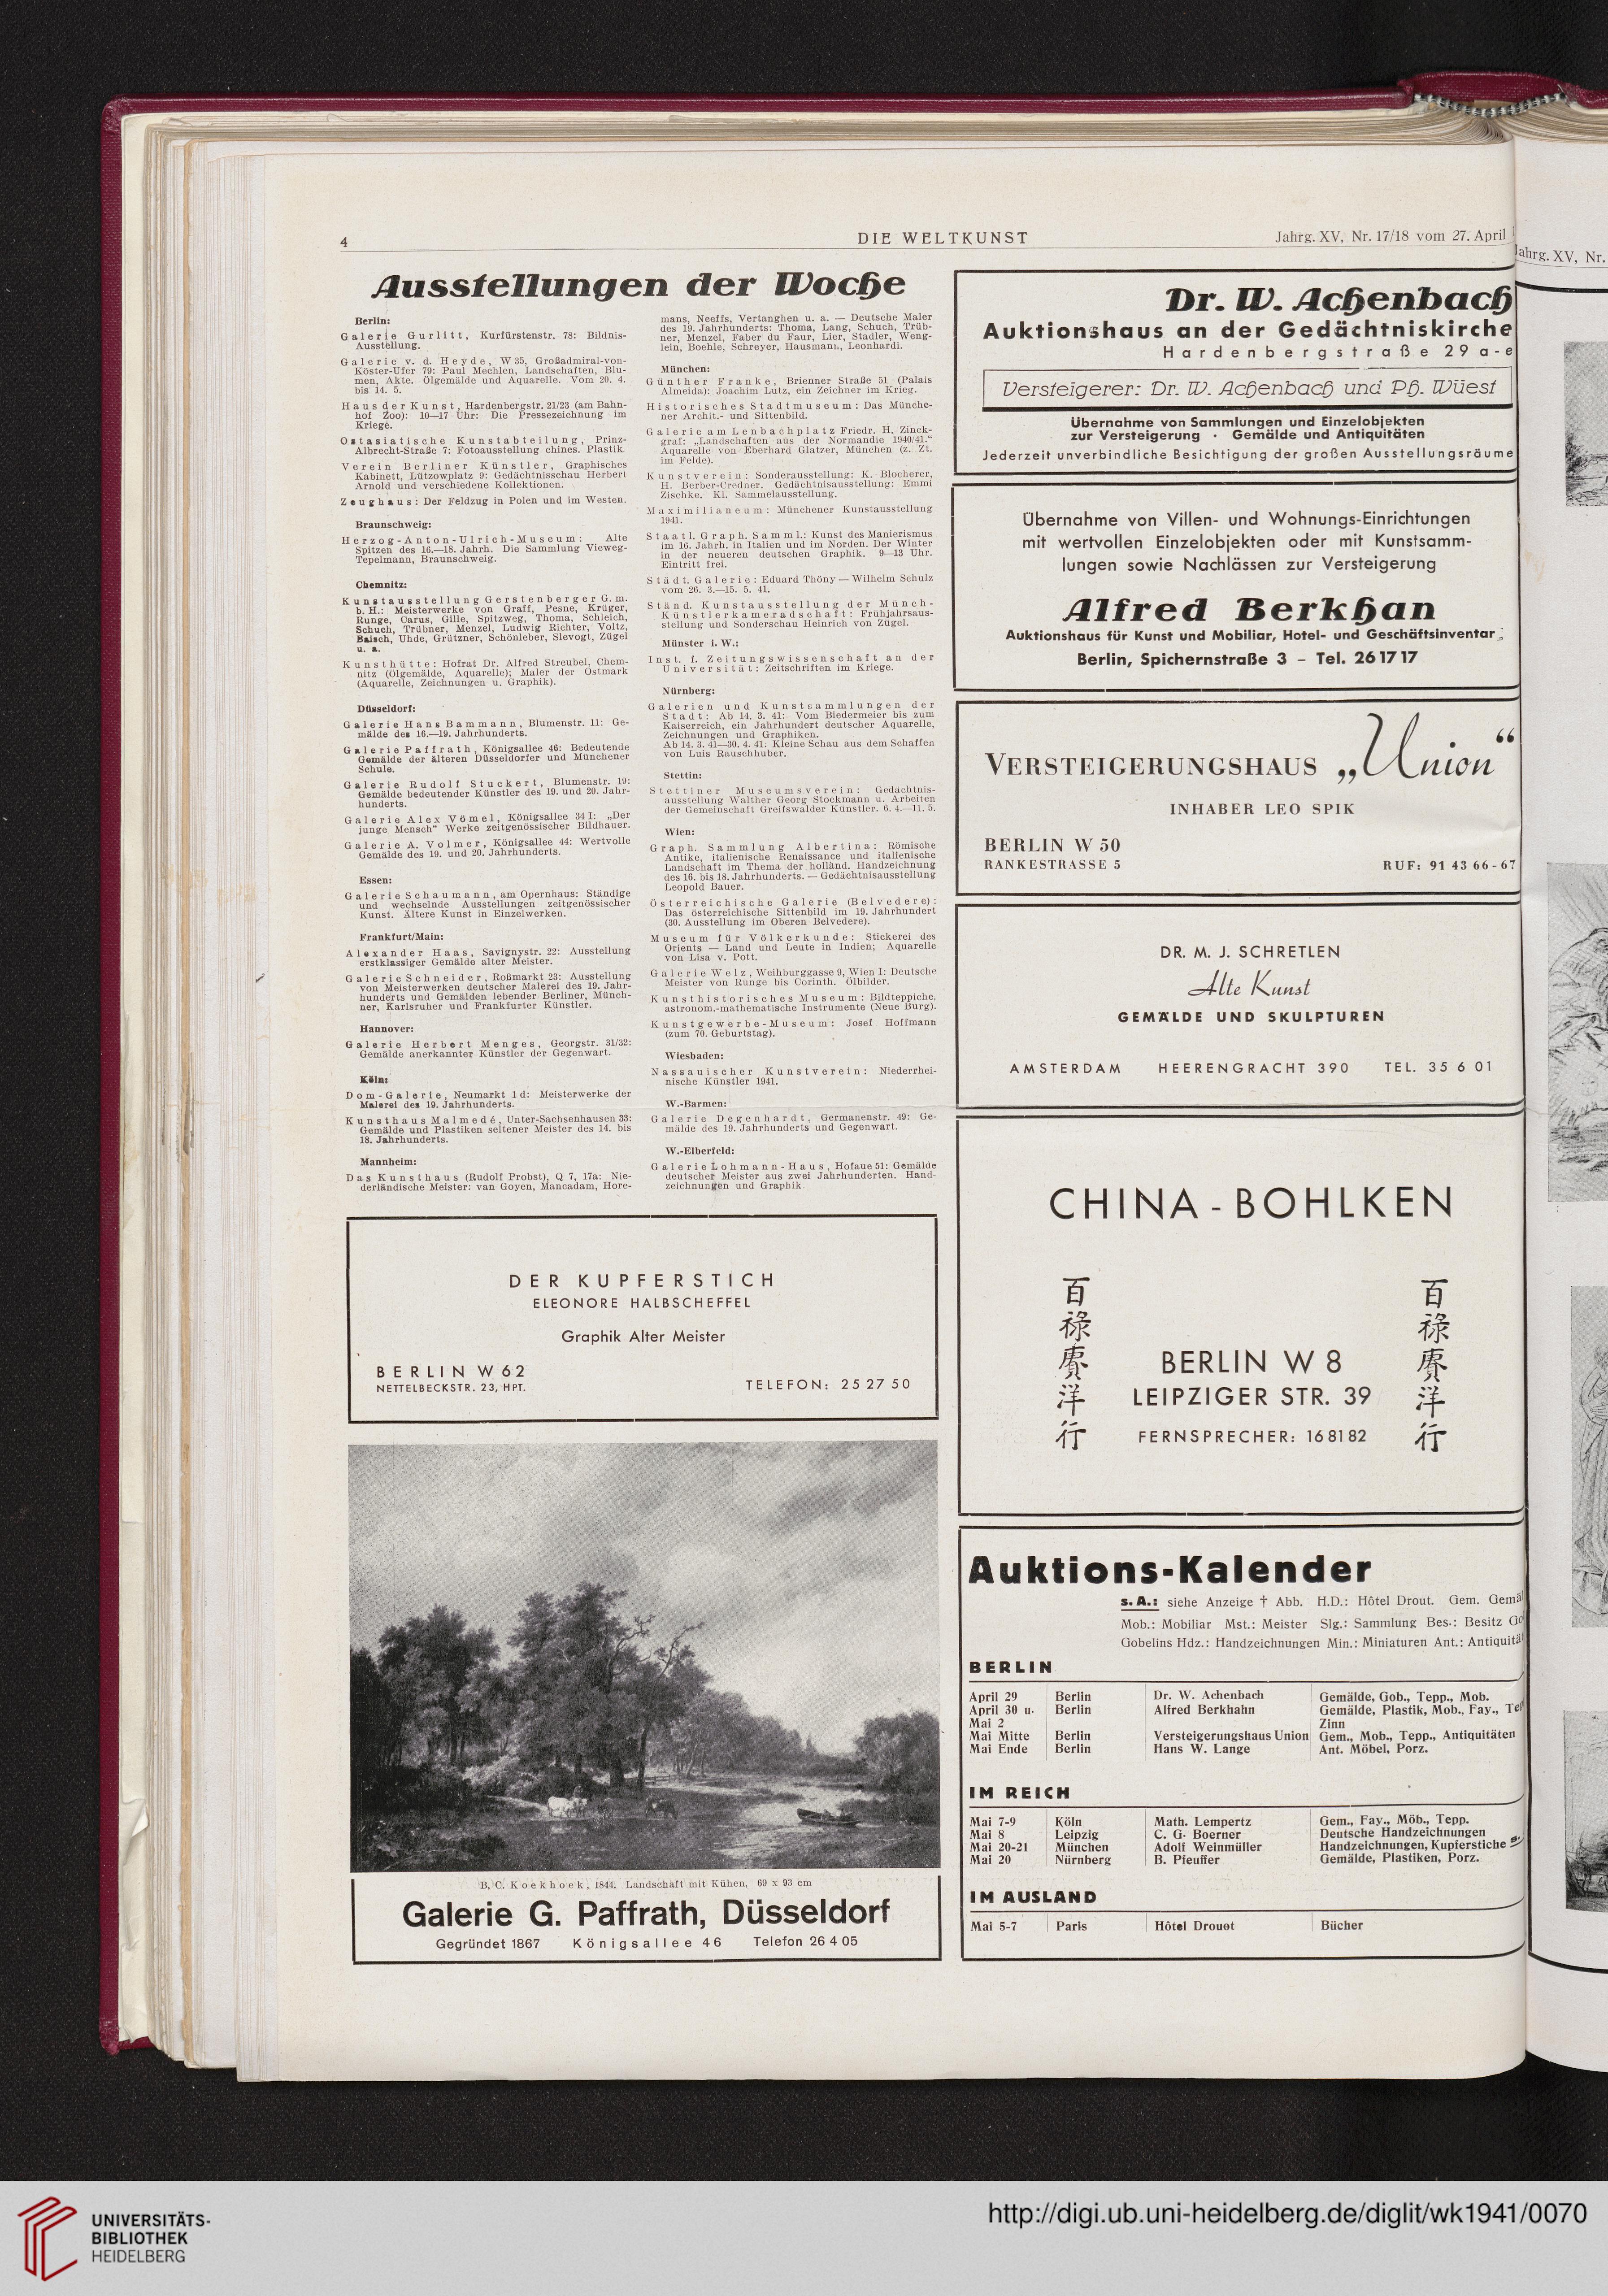 4
DIE WELTKUNST
Jahrg. XV, Nr. 17/18 vom 27. April
Ausstellungen der Woche
Berlin:
Galerie Gurlitt, Kurfürstenstr. 78: Bildnis-
Ausstellung.
Galerie v. d. Heyde, W 35, Großadmiral-von-
Köster-Ufer 79: Paul Mechlen, Landschaften, Blu-
men, Akte. Ölgemälde und Aquarelle. Vom 20. 4.
bis 14. 5.
Haus der Kunst, Hardenbergstr. 21/23 (am Bahn-
hof Zoo): 10—17 Uhr: Die Pressezeichnung im
Kriege.
Ostasiatische Kunstabteilung, Prinz-
Albrecht-Straße 7: Fotoausstellung chines. Plastik.
Verein Berliner Künstler, Graphisches
Kabinett, Lützowplatz 9: Gedächtnisschau Herbert
Arnold und verschiedene Kollektionen.
Zeughaus: Der Feldzug in Polen und im Westen.
Braunschweig:
Herzog-Anton-Ulrich-Museum: Alte
Spitzen des 16.—18. Jahrh. Die Sammlung Vieweg-
Tepelmann, Braunschweig.
Chemnitz:
Kunstausstellung Gerstenberger G. m.
b. H.: Meisterwerke von Graff, Pesne, Krüger,
Runge, Carus, Gille, Spitzweg, Thoma, Schleich,
Schuch, Trübner, Menzel, Ludwig Richter, Voltz,
Baisch, Uhde, Grützner, Schönleber, Slevogt, Zügel
u. a.
Kunsthütte: Hofrat Dr. Alfred Streubel, Chem-
nitz (Ölgemälde, Aquarelle); Maler der Ostmark
(Aquarelle, Zeichnungen u. Graphik).
Düsseldorf:
Galerie Hans Bammann, Blumenstr. 11: Ge-
mälde des 16.—19. Jahrhunderts.
Galerie Paffrath, Königsallee 46: Bedeutende
Gemälde der älteren Düsseldorfer und Münchener
Schule.
Galerie Rudolf Stuckert, Blumenstr. 19:
Gemälde bedeutender Künstler des 19. und 20. Jahr-
hunderts.
Galerie Alex Vömel, Königsallee 34 I: „Der
junge Mensch“ Werke zeitgenössischer Bildhauer.
Galerie A. Volmer, Königsallee 44: Wertvolle
Gemälde des 19. und 20. Jahrhunderts.
Essen:
Galerie Schaumann, am Opernhaus: Ständige
und wechselnde Ausstellungen zeitgenössischer
Kunst. Ältere Kunst in Einzelwerken.
Frankfurt/Main:
Alexander Haas, Savignystr. 22: Ausstellung
erstklassiger Gemälde alter Meister.
Galerie Schneider, Roßmarkt 23: Ausstellung
von Meisterwerken deutscher Malerei des 19. Jahr-
hunderts und Gemälden lebender Berliner, Münch-
ner, Karlsruher und Frankfurter Künstler.
Hannover:
Galerie Herbert Menges, Georgstr. 31/32:
Gemälde anerkannter Künstler der Gegenwart.
Köln:
Dom-Galerie, Neumarkt 1d: Meisterwerke der
Malerei des 19. Jahrhunderts.
Kunsthaus Malmedé, Unter-Sachsenhausen 33:
Gemälde und Plastiken seltener Meister des 14. bis
18. Jahrhunderts.
Mannheim:
Das Kunsthaus (Rudolf Probst), Q 7, 17a: Nie-
derländische Meister: van Goyen, Mancadam, Hore-
mans, Neeffs, Vertanghen u. a. — Deutsche Maler
des 19. Jahrhunderts: Thoma, Lang, Schuch, Trüb-
ner, Menzel, Faber du Faur, Lier, Stadler, Weng-
lein, Boehle, Schreyer, Hausmann, Leonhardi.
München:
Günther Franke, Brienner Straße 51 (Palais
Almeida): Joachim Lutz, ein Zeichner im Krieg.
Historisches Stadtmuseum: Das Münche-
ner Archit.- und Sittenbild.
Galerie am Lenbachplatz Friedr. H. Zinck-
graf: „Landschaften aus der Normandie 1940/41.“
Aquarelle von Eberhard Glatzer, München (z. Zt.
im Felde).
Kunstverein: Sonderausstellung: K. Blocherer,
H. Berber-Credner. Gedächtnisausstellung: Emmi
Zischke. Kl. Sammelausstellung.
Maximilianeum: Münchener Kunstausstellung
1941.
Staatl. Graph. Samml.: Kunst des Manierismus
im 16. Jahrh. in Italien und im Norden. Der Winter
in der neueren deutschen Graphik. 9—13 Uhr.
Eintritt frei.
Städt. Galerie: Eduard Thöny — Wilhelm Schulz
vom 26. 3.—15. 5. 41.
Ständ. Kunstausstellung der Münch-
Künstlerkameradschaft: Frühjahrsaus-
stellung und Sonderschau Heinrich von Zügel.
Münster i. W.:
Inst. f. Zeitungswissenschaft an der
Universität: Zeitschriften im Kriege.
Nürnberg:
Galerien und Kunstsammlungen der
Stadt: Ab 14. 3. 41: Vom Biedermeier bis zum
Kaiserreich, ein Jahrhundert deutscher Aquarelle,
Zeichnungen und Graphiken.
Ab 14. 3. 41—30. 4. 41: Kleine Schau aus dem Schaffen
von Luis Rauschhuber.
Stettin:
Stettiner Museumsverein: Gedächtnis-
ausstellung Walther Georg Stockmann u. Arbeiten
der Gemeinschaft Greifswalder Künstler. 6. 4.—11. 5.
Wien:
Graph. Sammlung Albertina: Römische
Antike, italienische Renaissance und italienische
Landschaft im Thema der holländ. Handzeichnung
des 16. bis 18. Jahrhunderts. — Gedächtnisausstellung
Leopold Bauer.
Österreichische Galerie (Belvedere):
Das österreichische Sittenbild im 19. Jahrhundert
(30. Ausstellung im Oberen Belvedere).
Museum für Völkerkunde: Stickerei des
Orients — Land und Leute in Indien; Aquarelle
von Lisa v. Pott.
Galerie Welz, Weihburggasse 9, Wien I: Deutsche
Meister von Runge bis Corinth. Ölbilder.
Kunsthistorisches Museum: Bildteppiche,
astronom.-mathematische Instrumente (Neue Burg).
Kunstgewerbe-Museum: Josef Hoffmann
(zum 70. Geburtstag).
Wiesbaden:
Nassauischer Kunstverein: Niederrhei-
nische Künstler 1941.
W.-Barmen:
Galerie Degenhardt, Germanenstr. 49: Ge-
mälde des 19. Jahrhunderts und Gegenwart.
W.-Elberfeld:
Galerie Lohmann-Haus, Hofaue 51: Gemälde
deutscher Meister aus zwei Jahrhunderten. Hand-
zeichnungen und Graphik.
DER KUPFERSTICH
ELEONORE HALBSCHEFFEL
Graphik Alter Meister
BERLIN W 62
NETTELBECKSTR. 23, HPT.
TELEFON: 25 27 50
B. C. Koekhoek, 1844. Landschaft mit Kühen, 69 x 93 cm
Galerie G. Paffrath, Düsseldorf
Gegründet 1867 Königsallee 46 Telefon 26 4 05
Dr. W. Achenbach
Auktionshaus an der Gedächtniskirche
Hardenbergstraße 29 a-e
Versteigerer: Dr. W. Achenbach und Ph. Wüest
Übernahme von Sammlungen und Einzelobjekten
zur Versteigerung · Gemälde und Antiquitäten
Jederzeit unverbindliche Besichtigung der großen Ausstellungsräume
Übernahme von Villen- und Wohnungs-Einrichtungen
mit wertvollen Einzelobjekten oder mit Kunstsamm-
lungen sowie Nachlässen zur Versteigerung
Alfred Berkhan
Auktionshaus für Kunst und Mobiliar, Hotel- und Geschäftsinventar
Berlin, Spichernstraße 3 – Tel. 26 17 17
VERSTEIGERUNGSHAUS „Union“
INHABER LEO SPIK
BERLIN W 50
RANKESTRASSE 5
RUF: 91 43 66-67
DR. M. J. SCHRETLEN
Alte Kunst
GEMÄLDE UND SKULPTUREN
AMSTERDAM HEERENGRACHT 390 TEL. 35 6 01
CHINA-BOHLKEN
百祿賡洋行
百祿賡洋行
BERLIN W 8
LEIPZIGER STR. 39
FERNSPRECHER: 16 81 82
Auktions-Kalender
s. A.: siehe Anzeige † Abb. H.D.: Hôtel Drout. Gem. Gemäl
Mob.: Mobiliar Mst.: Meister Slg.: Sammlung Bes.: Besitz Go
Gobelins Hdz.: Handzeichnungen Min.: Miniaturen Ant.: Antiquität
BERLIN
April 29 Berlin Dr. W. Achenbach Gemälde, Gob., Tepp., Mob.
April 30 u. Berlin Alfred Berkhahn Gemälde, Plastik, Mob., Fay., Tep
Mai 2 Zinn
Mai Mitte Berlin Versteigerungshaus Union Gem., Mob., Tepp., Antiquitäten
Mai Ende Berlin Hans W. Lange Ant. Möbel, Porz.
IM REICH
Mai 7-9 Köln Math. Lempertz Gem., Fay., Möb., Tepp.
Mai 8 Leipzig C. G. Boerner Deutsche Handzeichnungen
Mai 20-21 München Adolf Weinmüller Handzeichnungen, Kupferstiche s.
Mai 20 Nürnberg B. Pfeuffer Gemälde, Plastiken, Porz.
IM AUSLAND
Mai 5-7 Paris Hôtel Drouot Bücher
Jahrg. XV, Nr.
UNIVERSITÄTS-
BIBLIOTHEK
HEIDELBERG
http://digi.ub.uni-heidelberg.de/diglit/wk1941/0070